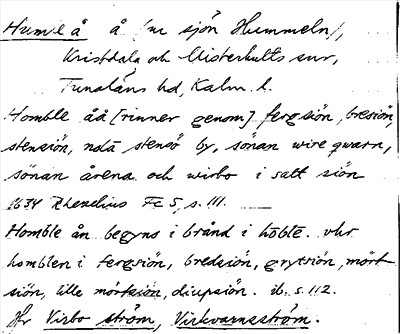 Humleå å (ur sjön Hummeln),
Kristdala och Misterhults snr,
Tunaläns hd, Kalm. l.
Homble åå [rinner genom] fergsiön, bresiön,
stensiön, ndå stensö by, sönan wire qwarn,
sönan årena och wirbo i salt siön
1634 Rhezelius Fc 5, s. 111.
Homble ån begyns i brånd i höbte. vhr
homblen i fergsiön, bredsiön, grytsiön, mört
siön, lille mörtsiön, diupsiön. ib. s. 112.
Hr Virbo ström, Virkvarnsström.